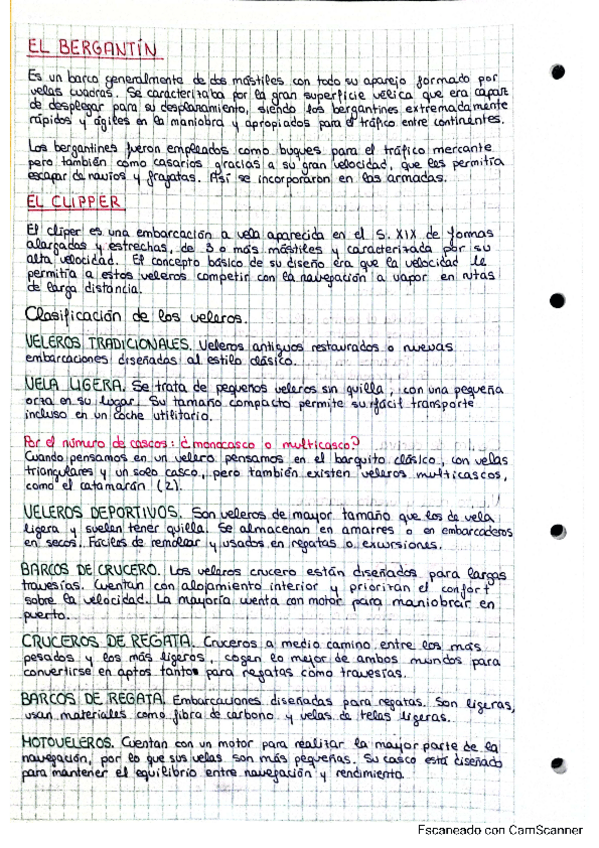 EL BERGANTÍN
Es un barco generalmente de dos mástiles con todo su aparejo formado por
velas cuadras. Se caracterizaba por la gran superficie vélica que era capaz
de desplegar para su desplazamiento, siendo los bergantines extremadamente
rápidos y ágiles en la maniobra y apropiados para el tráfico entre continentes.
Los bergantines fueron empleados como buques para el tráfico mercante
pero también como casarios gracias a su gran velocidad, que les permitía
escapar de navíos y fragatas. Así se incorporaron en las armadas.
EL CLIPPER
El clíper es una embarcación a vela aparecida en el S. XIX de formas
alargados y estrechas, de 3 o más mástiles y caracterizada por su
alta velocidad. El concepto básico de su diseño era que la velocidad le
permitía a estos veleros competir con la navegación a vapor en rutas
de larga distancia.
Clasificación de los veleros.
VELEROS TRADICIONALES. Veleros antiguos restaurados o nuevas
embarcaciones diseñadas al estilo clásico.
VELA LIGERA. Se trata de pequeños veleros sin quilla, con una pequeña
orza en su lugar. Su tamaño compacto permite su fácil transporte
incluso en un coche utilitario.
Por el número de cascos: ¿monocasco o multicasco?
Cuando pensamos en un velero pensamos en el barquito clásico, con velas
triangulares y un solo casco, pero también existen veleros multicascos,
como el catamarán (2).
VELEROS DEPORTIVOS. Son veleros de mayor tamaño que los de vela
ligera y suelen tener quilla. Se almacenan en amarres o en embarcaderos
en secos. Fáciles de remolcar y usados en regatas o excursiones.
BARCOS DE CRUCERO. Los veleros crucero están diseñados para largas
travesías. Cuentan con alojamiento interior y priorizan el confort
sobre la velocidad. La mayoría cuenta con motor para maniobrar en
puerto.
CRUCEROS DE REGATA. Cruceros a medio camino entre los más
pesados y los más ligeros, cogen lo mejor de ambos mundos para
convertirse en aptos tanto para regatas como travesías.
BARCOS DE REGATA. Embarcaciones diseñadas para regatas. Son ligeras,
usan materiales como fibra de carbono y velas de telas ligeras.
MOTOVELEROS. Cuentan con un motor para realizar la mayor parte de la
navegación, por lo que sus velas son más pequeñas. Su casco está diseñado
para mantener el equilibrio entre navegación y rendimiento.
Escaneado con CamScanner